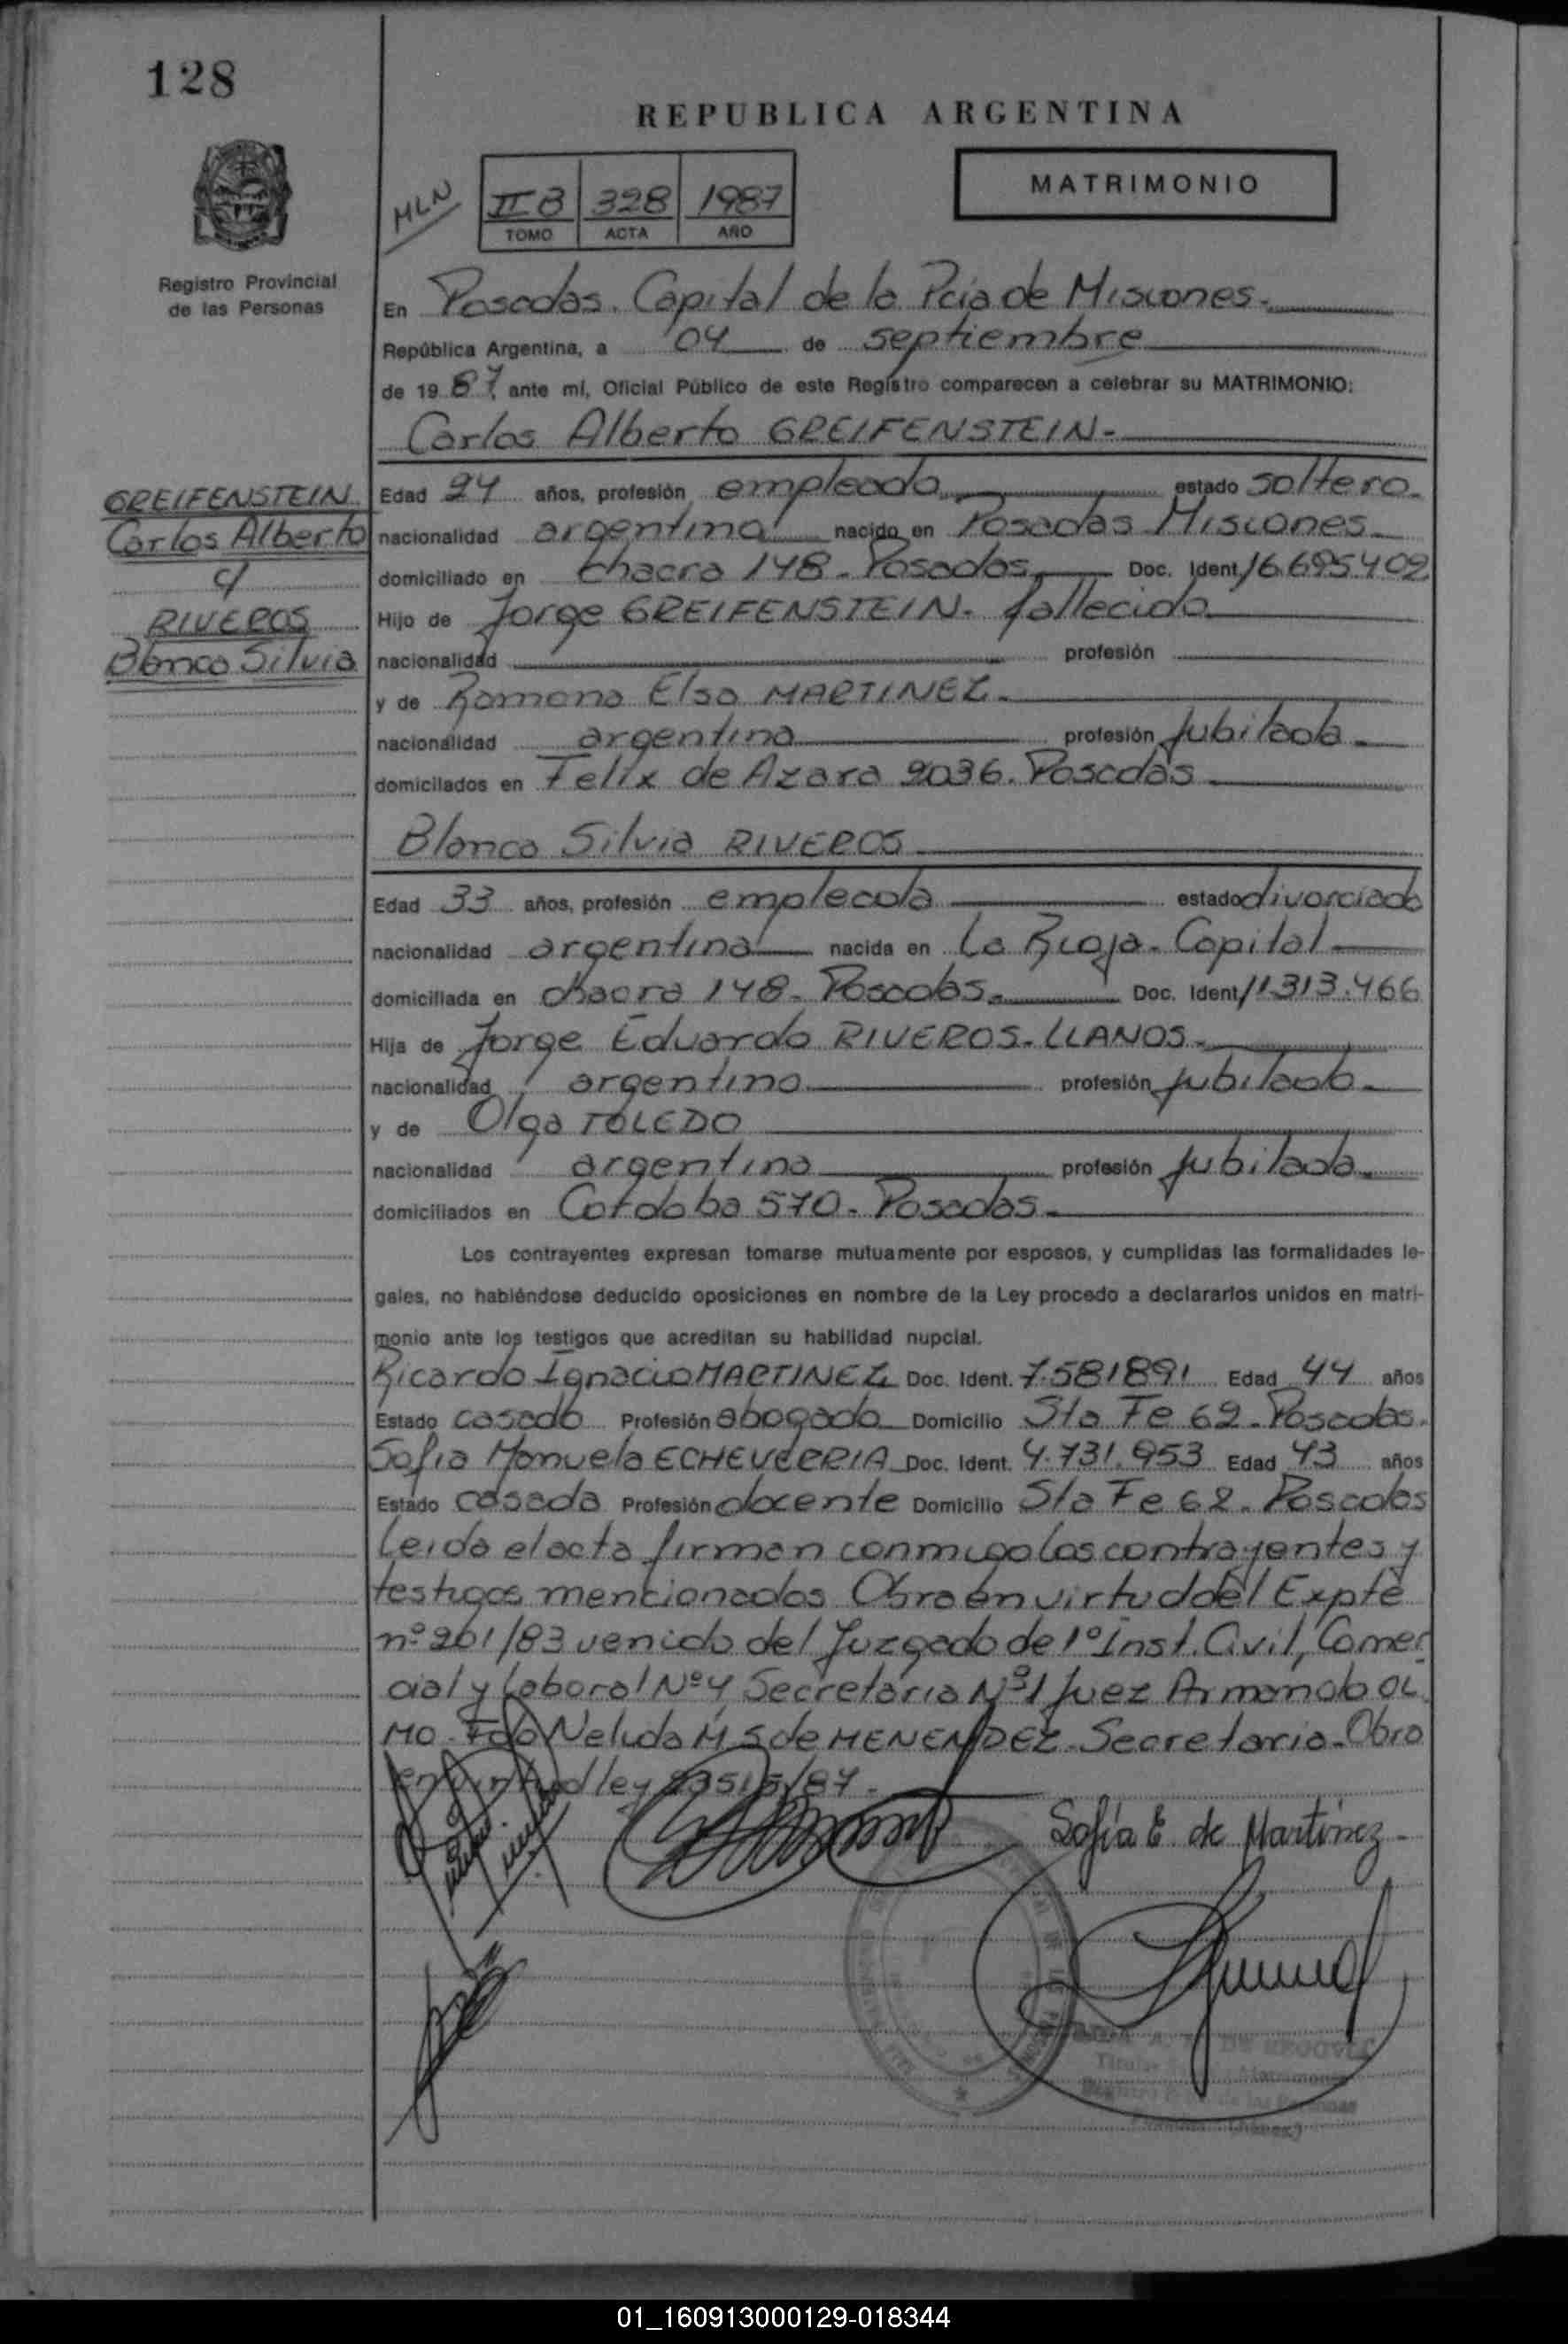 128
REPUBLICA ARGENTINA
MATRIMONIO
MLN
II B 328 1987
TOMO ACTA AÑO
Registro Provincial
de las Personas
En Posadas. Capital de la Pcia de Misiones.
República Argentina, a 04 de septiembre
de 1987, ante mí, Oficial Público de este Registro comparecen a celebrar su MATRIMONIO:
Carlos Alberto GREIFENSTEIN.
GREIFENSTEIN
Carlos Alberto
c/
RIVEROS
Blanca Silvia
Edad 24 años, profesión empleado estado soltero.
nacionalidad argentina nacido en Posadas Misiones.
domiciliado en chacra 148. Posadas. Doc. Ident. 16.695.402
Hijo de Jorge GREIFENSTEIN. fallecido
nacionalidad profesión
y de Ramona Elsa MARTINEZ.
nacionalidad argentina profesión jubilada.
domicilados en Felix de Azara 2036. Posadas
Blanca Silvia RIVEROS
Edad 33 años, profesión empleada estado divorciada
nacionalidad argentina nacida en La Rioja. Capital
domiciliada en chacra 148. Posadas. Doc. Ident. 11.313.466
Hija de Jorge Eduardo RIVEROS-LLANOS.
nacionalidad argentino profesión jubilado.
y de Olga TOLEDO
nacionalidad argentina profesión jubilada.
domiciliados en Cordoba 570. Posadas.
Los contrayentes expresan tomarse mutuamente por esposos, y cumplidas las formalidades le-
gales, no habiéndose deducido oposiciones en nombre de la Ley procedo a declararlos unidos en matri-
monio ante los testigos que acreditan su habilidad nupcial.
Ricardo Ignacio MARTINEZ Doc. Ident. 7.581891 Edad 44 años
Estado casado Profesión abogado Domicilio Sta Fe 62. Posadas.
Sofia Manuela ECHEVERRIA Doc. Ident. 4.731.953 Edad 43 años
Estado casada Profesión docente Domicilio Sta Fe 62. Posadas
Leida el acta firman conmigo los contrayentes y
testigos mencionados Obra en virtud del Expte
nº 201/83 venido del Juzgado de 1º Inst. Civil, Comer
cial y Laboral Nº 4 Secretaria Nº 1 Juez Armando OL
MO. Fdo Nelida M. S de MENENDEZ. Secretaria. Obra
en virtud ley 23515/87.
Sofía E de Martínez.
01_160913000129-018344